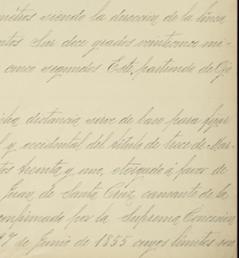 metros siendo la dirección de la línea,
Sur doce grados veinticinco mi-
cinco segundos Este, partiendo de
dicha distancia, sirve de base para fijar
y occidental del título de trece de Mar-
noventa y uno, otorgado á favor de
Juan, de Santa Cruz, causante de la
confirmado por la Suprema Concesión
de Junio de 1885 cuyos límites son